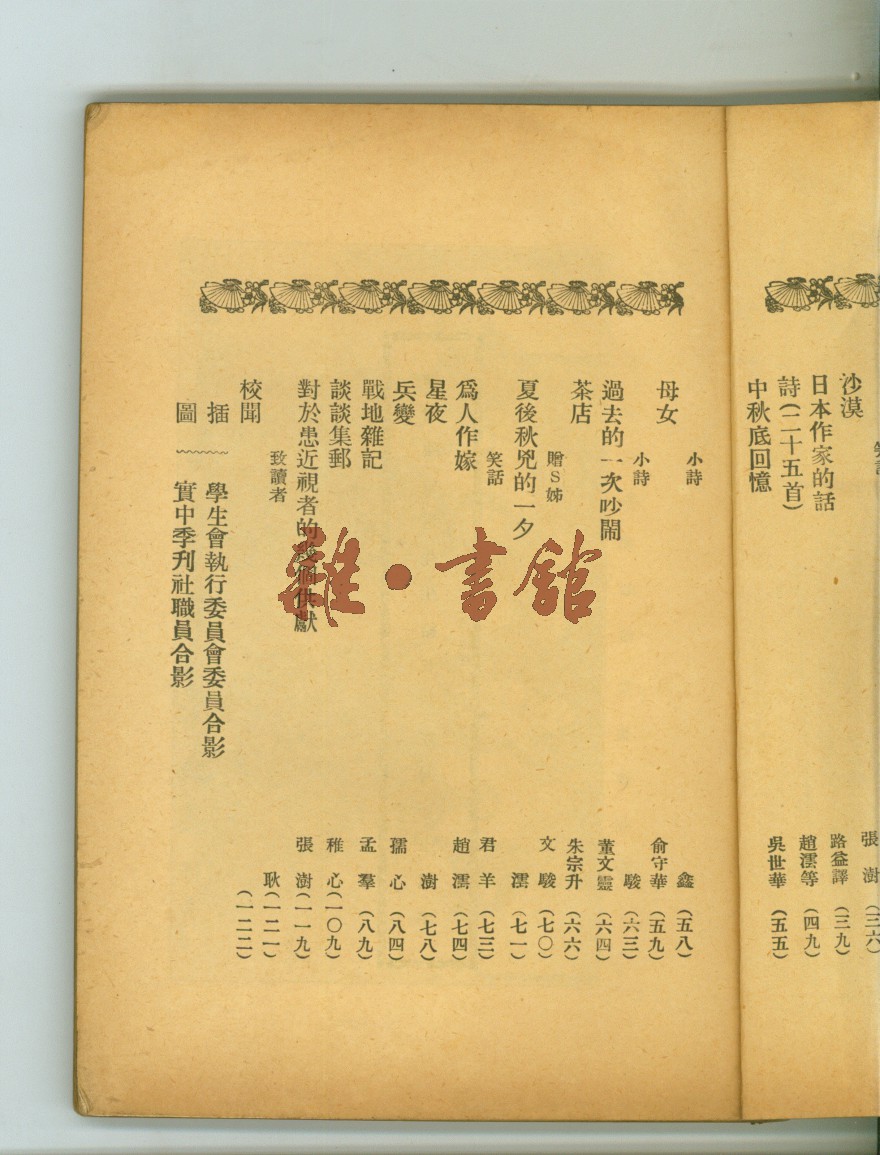 沙漠 張澍 (三六)
日本作家的話 路益譯 (三九)
詩(二十五首) 趙澐等 (四九)
中秋底回憶 吳世華 (五五)
小詩 鑫 (五八)
母女 俞守華 (五九)
小詩 駿 (六三)
過去的一次吵鬧 董文靈 (六四)
茶店 朱宗升 (六六)
贈S姊 文駿 (七〇)
夏後秋兇的一夕 澐 (七一)
笑話 君羊 (七三)
爲人作嫁 趙澐 (七四)
星夜 澍 (七八)
兵變 孺心 (八四)
戰地雜記 孟羣 (八九)
談談集郵 稚心 (一〇九)
對於患近視者的幾個供獻 張澍 (一一九)
致讀者 耿 (一二一)
校聞 (一二二)
插圖
學生會執行委員會委員合影
實中季刊社職員合影
雜·書館